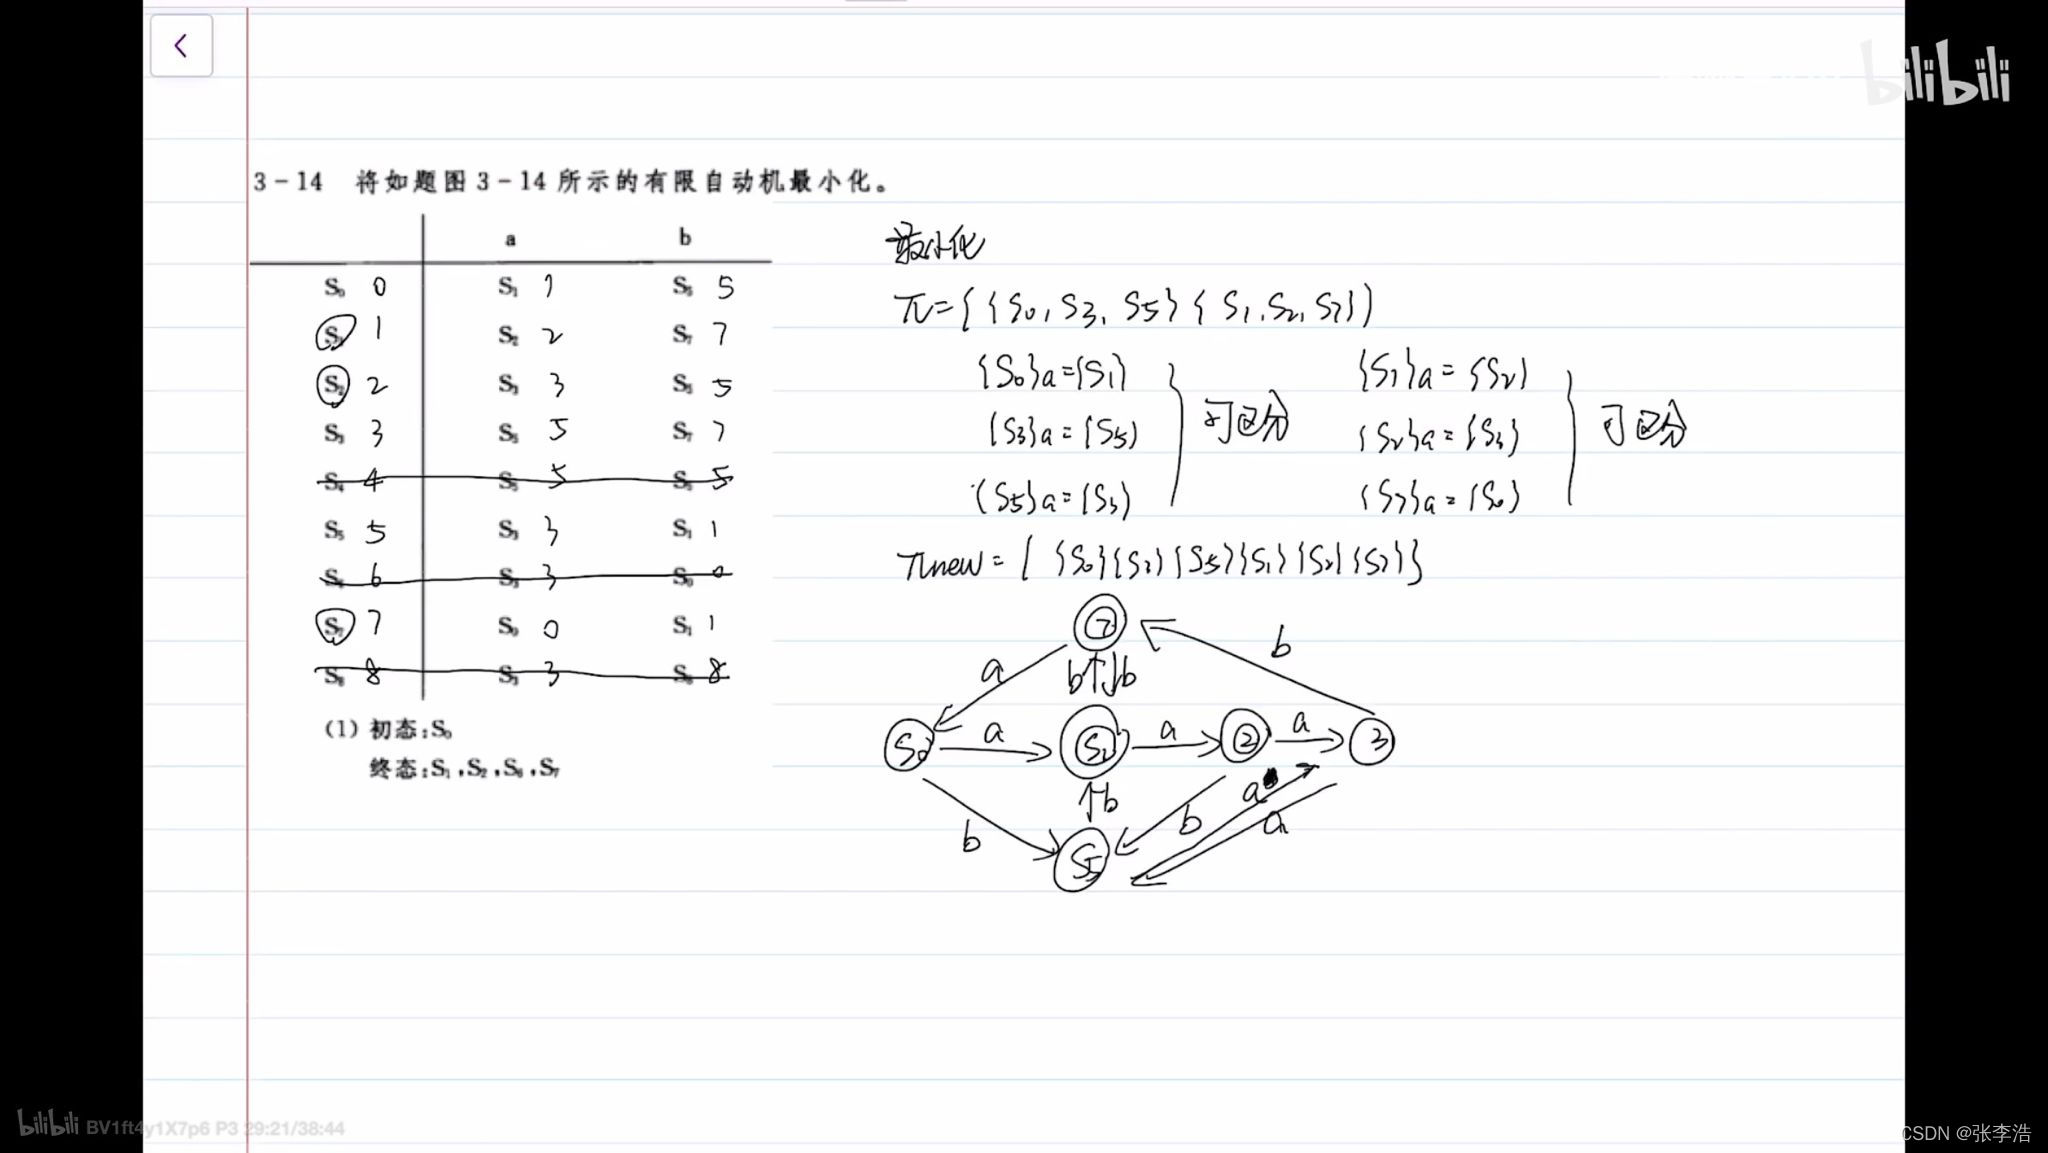 bilibili
3-14 将如题图3-14所示的有限自动机最小化。
a b
S₀ 0 S₁ 1 S₅ 5
1 S₂ 2 S₇ 7
S₂ 2 S₃ 3 S₅ 5
S₃ 3 S₅ 5 S₇ 7
S₄ 4 S₅ 5 5
S₅ 5 S₃ 3 S₁ 1
6 S₃ 3 S₀ 0
S₇ 7 S₀ 0 S₁ 1
S₈ 8 S₃ 3 8
(1) 初态:S₀
终态:S₁,S₂,S₈,S₇
最小化
π={{S0,S3,S5}{S1,S2,S7}}
{S0}a={S1}
{S3}a={S5}
{S5}a={S3}
可区分
{S1}a={S2}
{S2}a={S3}
{S7}a={S0}
可区分
πnew={{S0}{S3}{S5}{S1}{S2}{S7}}
7
a
b b
b
S0
a
S1
a
2
a
3
b
b
b
a
a
S5
bilibili BV1ft4y1X7p6 P3 29:21/38:44
CSDN @张李浩